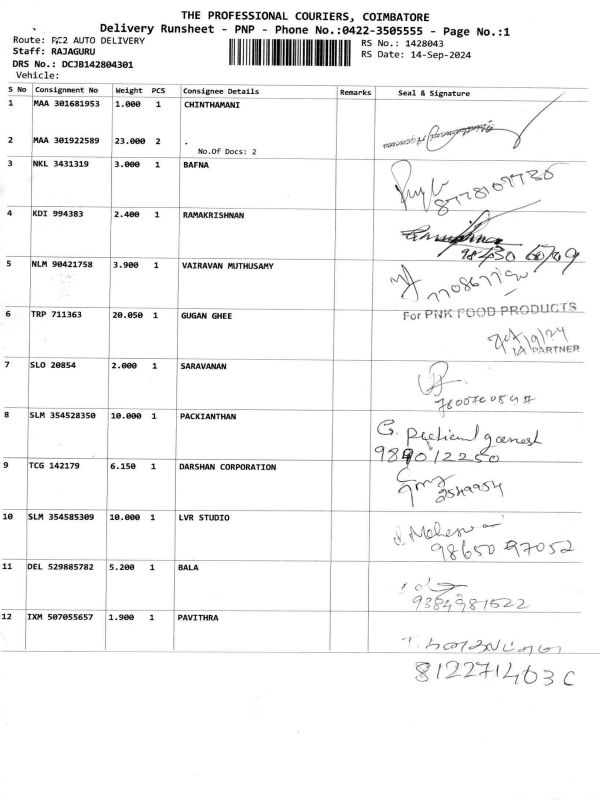 THE PROFESSIONAL COURIERS, COIMBATORE
Delivery Runsheet - PNP - Phone No.:0422-3505555 - Page No.:1
Route: FC2 AUTO DELIVERY
RS No.: 1428043
Staff: RAJAGURU
RS Date: 14-Sep-2024
DRS No.: DCJB142804301
Vehicle:
S No Consignment No Weight PCS Consignee Details Remarks Seal & Signature
1 MAA 301681953 1.000 1 CHINTHAMANI
2 MAA 301922589 23.000 2 .
No.Of Docs: 2
3 NKL 3431319 3.000 1 BAFNA
4 KDI 994383 2.400 1 RAMAKRISHNAN
5 NLM 90421758 3.900 1 VAIRAVAN MUTHUSAMY
6 TRP 711363 20.050 1 GUGAN GHEE For PNK FOOD PRODUCTS
PARTNER
7 SLO 20854 2.000 1 SARAVANAN
8 SLM 354528350 10.000 1 PACKIANTHAN
9 TCG 142179 6.150 1 DARSHAN CORPORATION
2549954
10 SLM 354585309 10.000 1 LVR STUDIO
98650 97052
11 DEL 529885782 5.200 1 BALA
9384981522
12 IXM 507055657 1.900 1 PAVITHRA